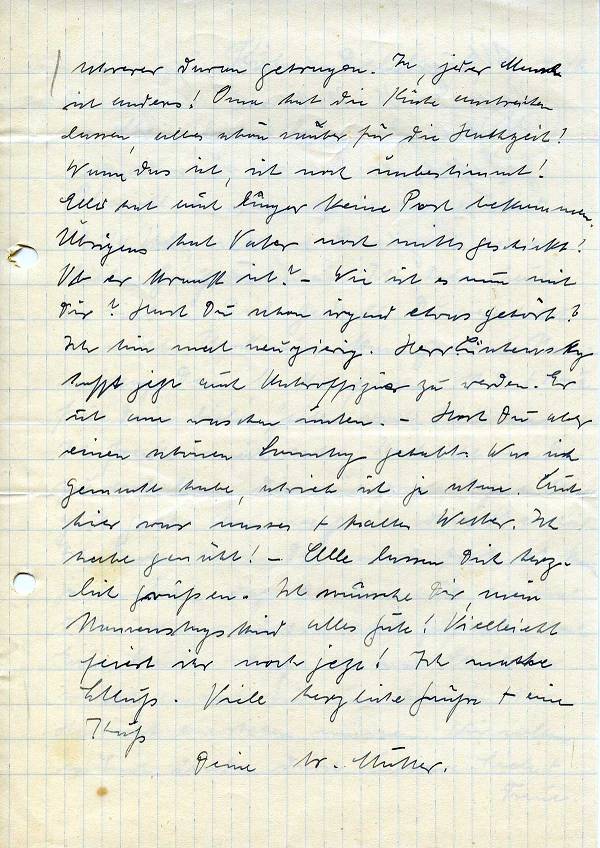 schwerer daran getragen. Ja, jeder Mensch
ist anders! Oma hat die Küche ausstreichen
lassen, alles schön sauber für die Hochzeit!
Wann das ist, ist noch unbestimmt!
Elli hat auch länger keine Post bekommen.
Übrigens hat Vater noch nichts geschickt!
Ob er krank ist? – Wie ist es nun mit
Dir? Hast Du schon irgend etwas gehört?
Ich bin mal neugierig. Herr
hofft jetzt auch Unteroffizier zu werden. Er
ist unten. – Hast Du aber
einen schönen Sonntag gehabt. Was ich
gemacht habe, schrieb ich ja schon. Auch
hier war nasses + kaltes Wetter. Ich
habe genäht! – Alle lassen Dich herz-
lich grüßen. Ich wünsche Dir, mein
Namenstagskind alles Gute! Vielleicht
feiert ihr noch jetzt! Ich mache
Schluß. Viele herzliche Grüße + ein
Kuß
Deine Mutter.